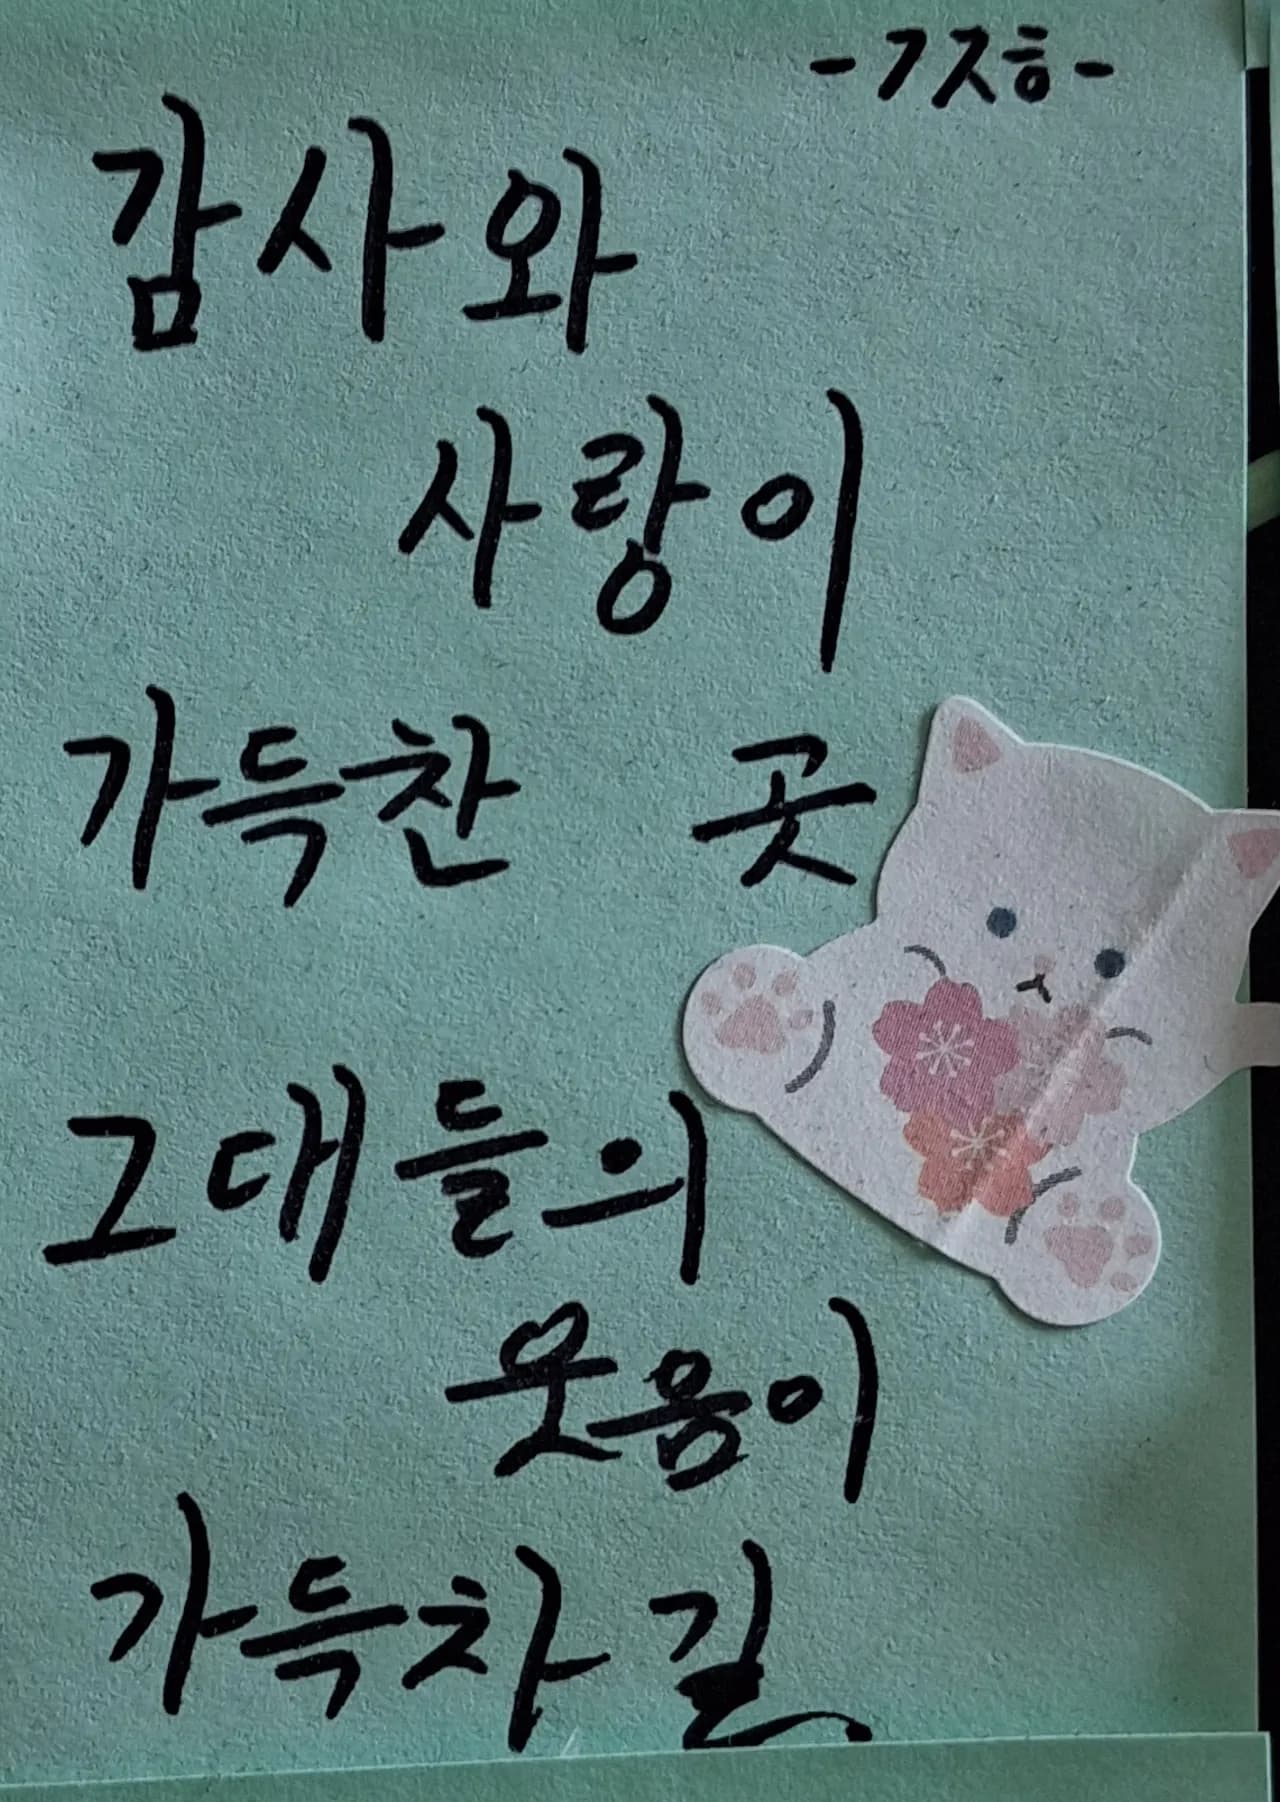 -ㄱㅈㅎ-
감사와
사랑이
가득찬 곳
그대들의
웃음이
가득차길